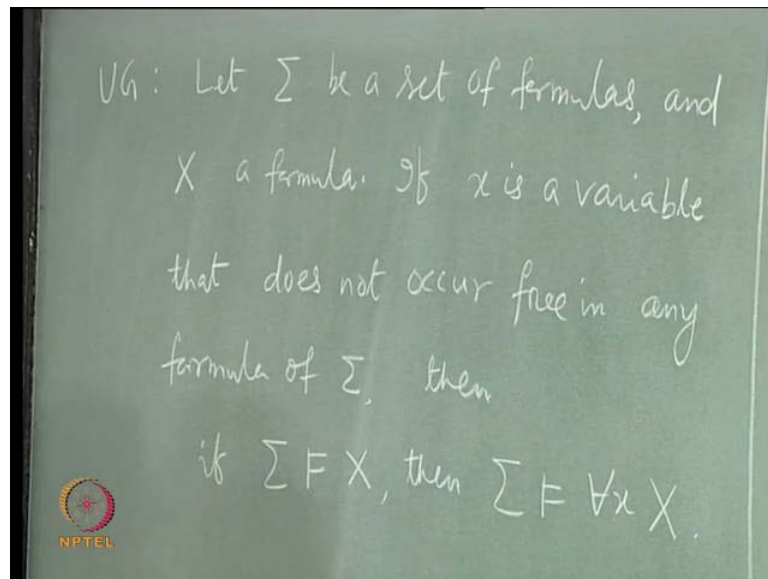 UG: Let Σ be a set of formulas, and
X a formula. If x is a variable
that does not occur free in any
formula of Σ, then
if Σ ⊨ X, then Σ ⊨ ∀x X.
NPTEL